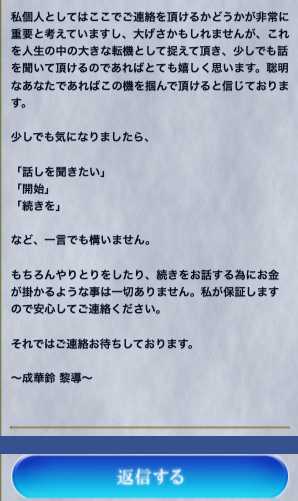 私個人としてはここでご連絡を頂けるかどうかが非常に
重要と考えていますし、大げさかもしれませんが、これ
を人生の中の大きな転機として捉えて頂き、少しでも話
を聞いて頂けるのであればとても嬉しく思います。聡明
なあなたであればこの機を掴んで頂けると信じておりま
す。
少しでも気になりましたら、
「話しを聞きたい」
「開始」
「続きを」
など、一言でも構いません。
もちろんやりとりをしたり、続きをお話する為にお金
が掛かるような事は一切ありません。私が保証します
ので安心してご連絡ください。
それではご連絡お待ちしております。
〜成華鈴 黎導〜
返信する